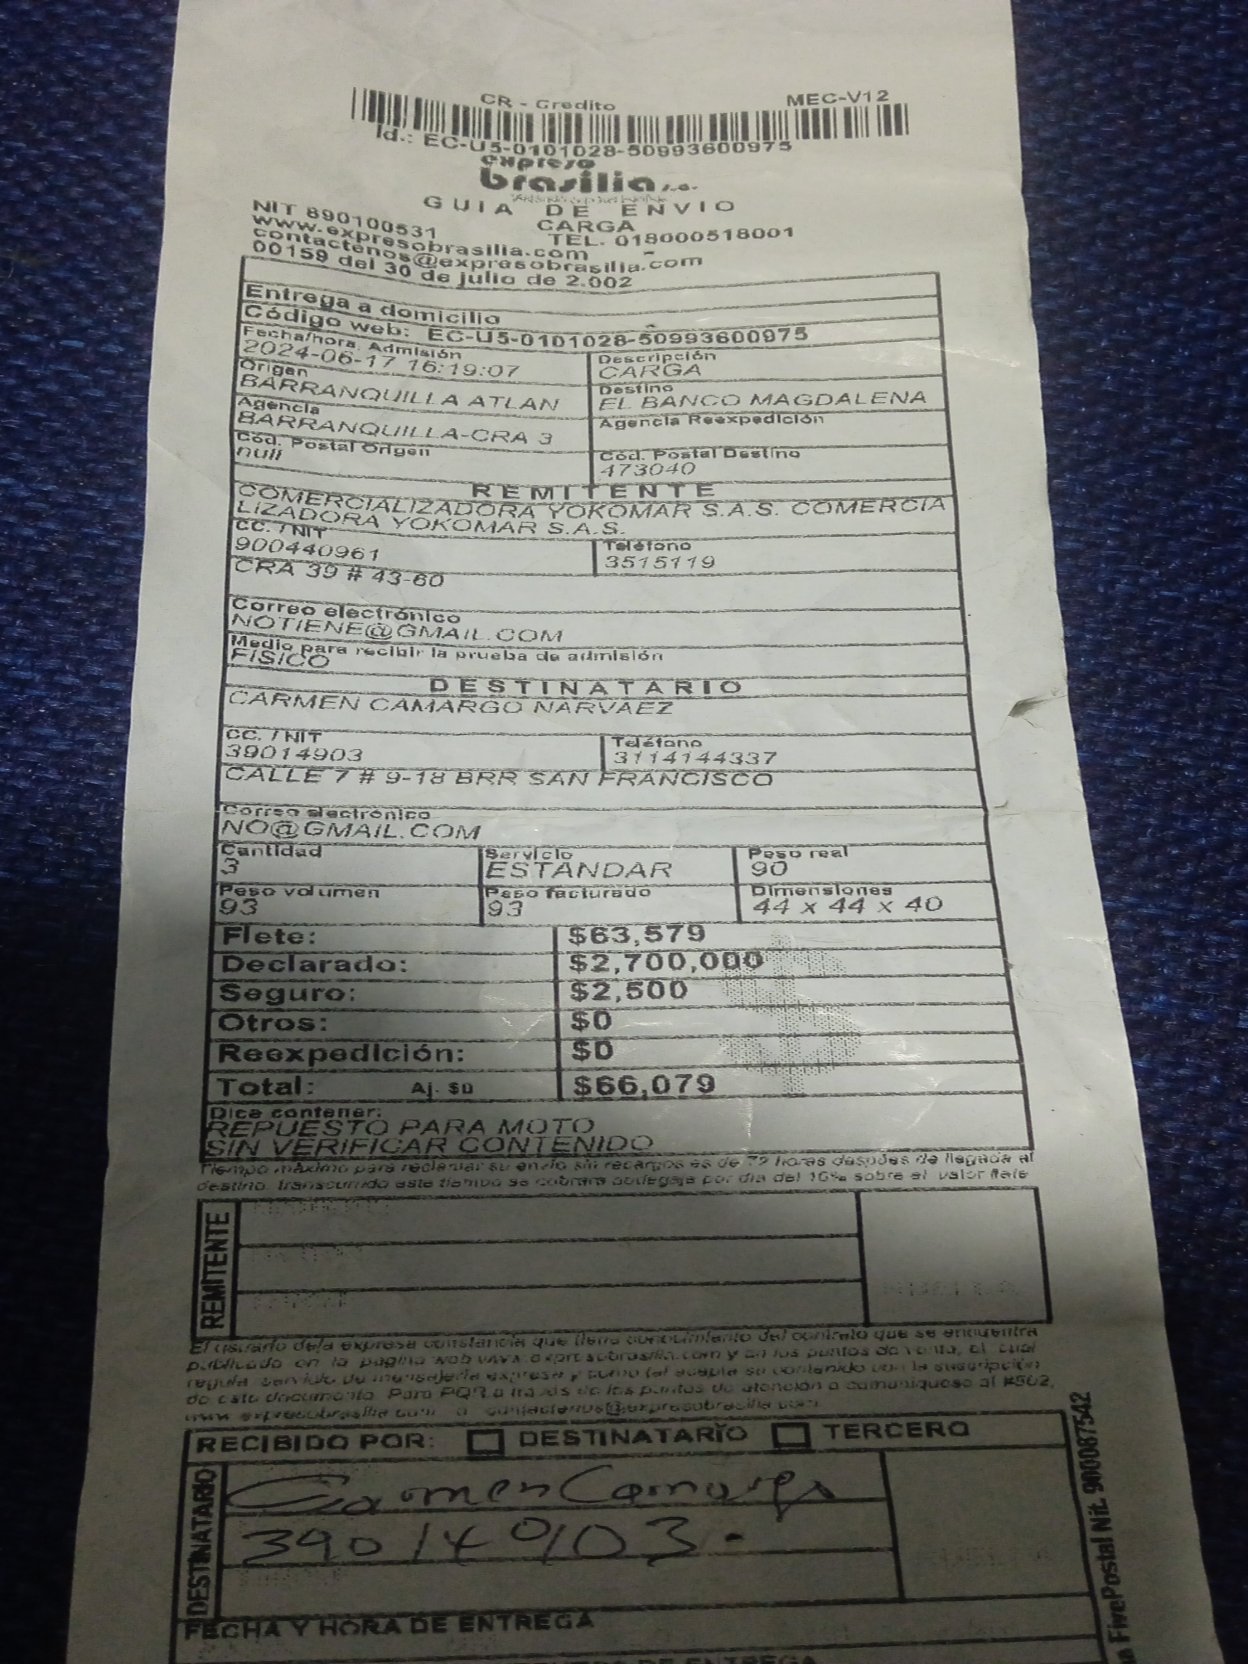 CR - Credito
MEC-V12
Id.: EC-U5-0101028-50993600975
expreso
brasilia s.a.
GUIA DE ENVIO
NIT 890100531
CARGA
www.expresobrasilia.com
TEL. 018000518001
contactenos@expresobrasilia.com
00159 del 30 de julio de 2.002
Entrega a domicilio
Código web: EC-U5-0101028-50993600975
Fecha/hora. Admisión
2024-06-17 16:19:07
Descripción
CARGA
Origen
BARRANQUILLA ATLAN
Destino
EL BANCO MAGDALENA
Agencia
BARRANQUILLA-CRA 3
Agencia Reexpedición
Cód. Postal Origen
null
Cód. Postal Destino
473040
REMITENTE
COMERCIALIZADORA YOKOMAR S.A.S. COMERCIA
LIZADORA YOKOMAR S.A.S.
CC. / NIT
900440961
Teléfono
3515119
CRA 39 # 43-60
Correo electrónico
NOTIENE@GMAIL.COM
Medio para recibir la prueba de admisión
FISICO
DESTINATARIO
CARMEN CAMARGO NARVAEZ
CC. / NIT
39014903
Teléfono
3114144337
CALLE 7 # 9-18 BRR SAN FRANCISCO
Correo electrónico
NO@GMAIL.COM
Cantidad
3
Servicio
ESTANDAR
Peso real
90
Peso volumen
93
Peso facturado
93
Dimensiones
44 x 44 x 40
Flete: $63,579
Declarado: $2,700,000
Seguro: $2,500
Otros: $0
Reexpedición: $0
Total: Aj. $0 $66,079
Dice contener:
REPUESTO PARA MOTO
SIN VERIFICAR CONTENIDO
Tiempo máximo para reclamar su envio sin recargos es de 72 horas después de llegada al
destino, transcurrido este tiempo se cobrara bodegaje por dia del 10% sobre el valor flete
REMITENTE
El usuario deja expresa constancia que tiene conocimiento del contrato que se encuentra
publicado en la pagina web www.expresobrasilia.com y en los puntos de venta, el cual
regula servicio de mensajería expresa y como tal acepta su contenido con la suscripción
de este documento. Para PQR a través de los puntos de atención o comuniquese al #502,
www.expresobrasilia.com o contactenos@expresobrasilia.com
RECIBIDO POR: DESTINATARIO TERCERO
DESTINATARIO
Carmen Camargo
39014903.
FECHA Y HORA DE ENTREGA
FivePostal Nit. 900087542